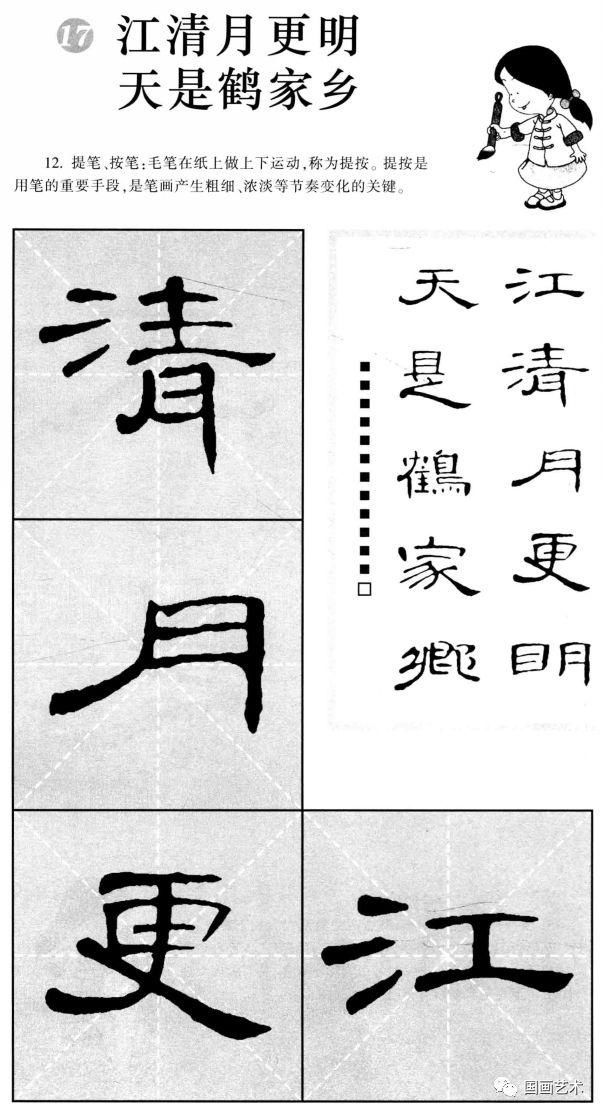 17
江清月更明
天是鹤家乡
12. 提笔、按笔：毛笔在纸上做上下运动，称为提按。提按是
用笔的重要手段，是笔画产生粗细、浓淡等节奏变化的关键。
江清月更明
天是鶴家鄉
江
清
月
更
国画艺术